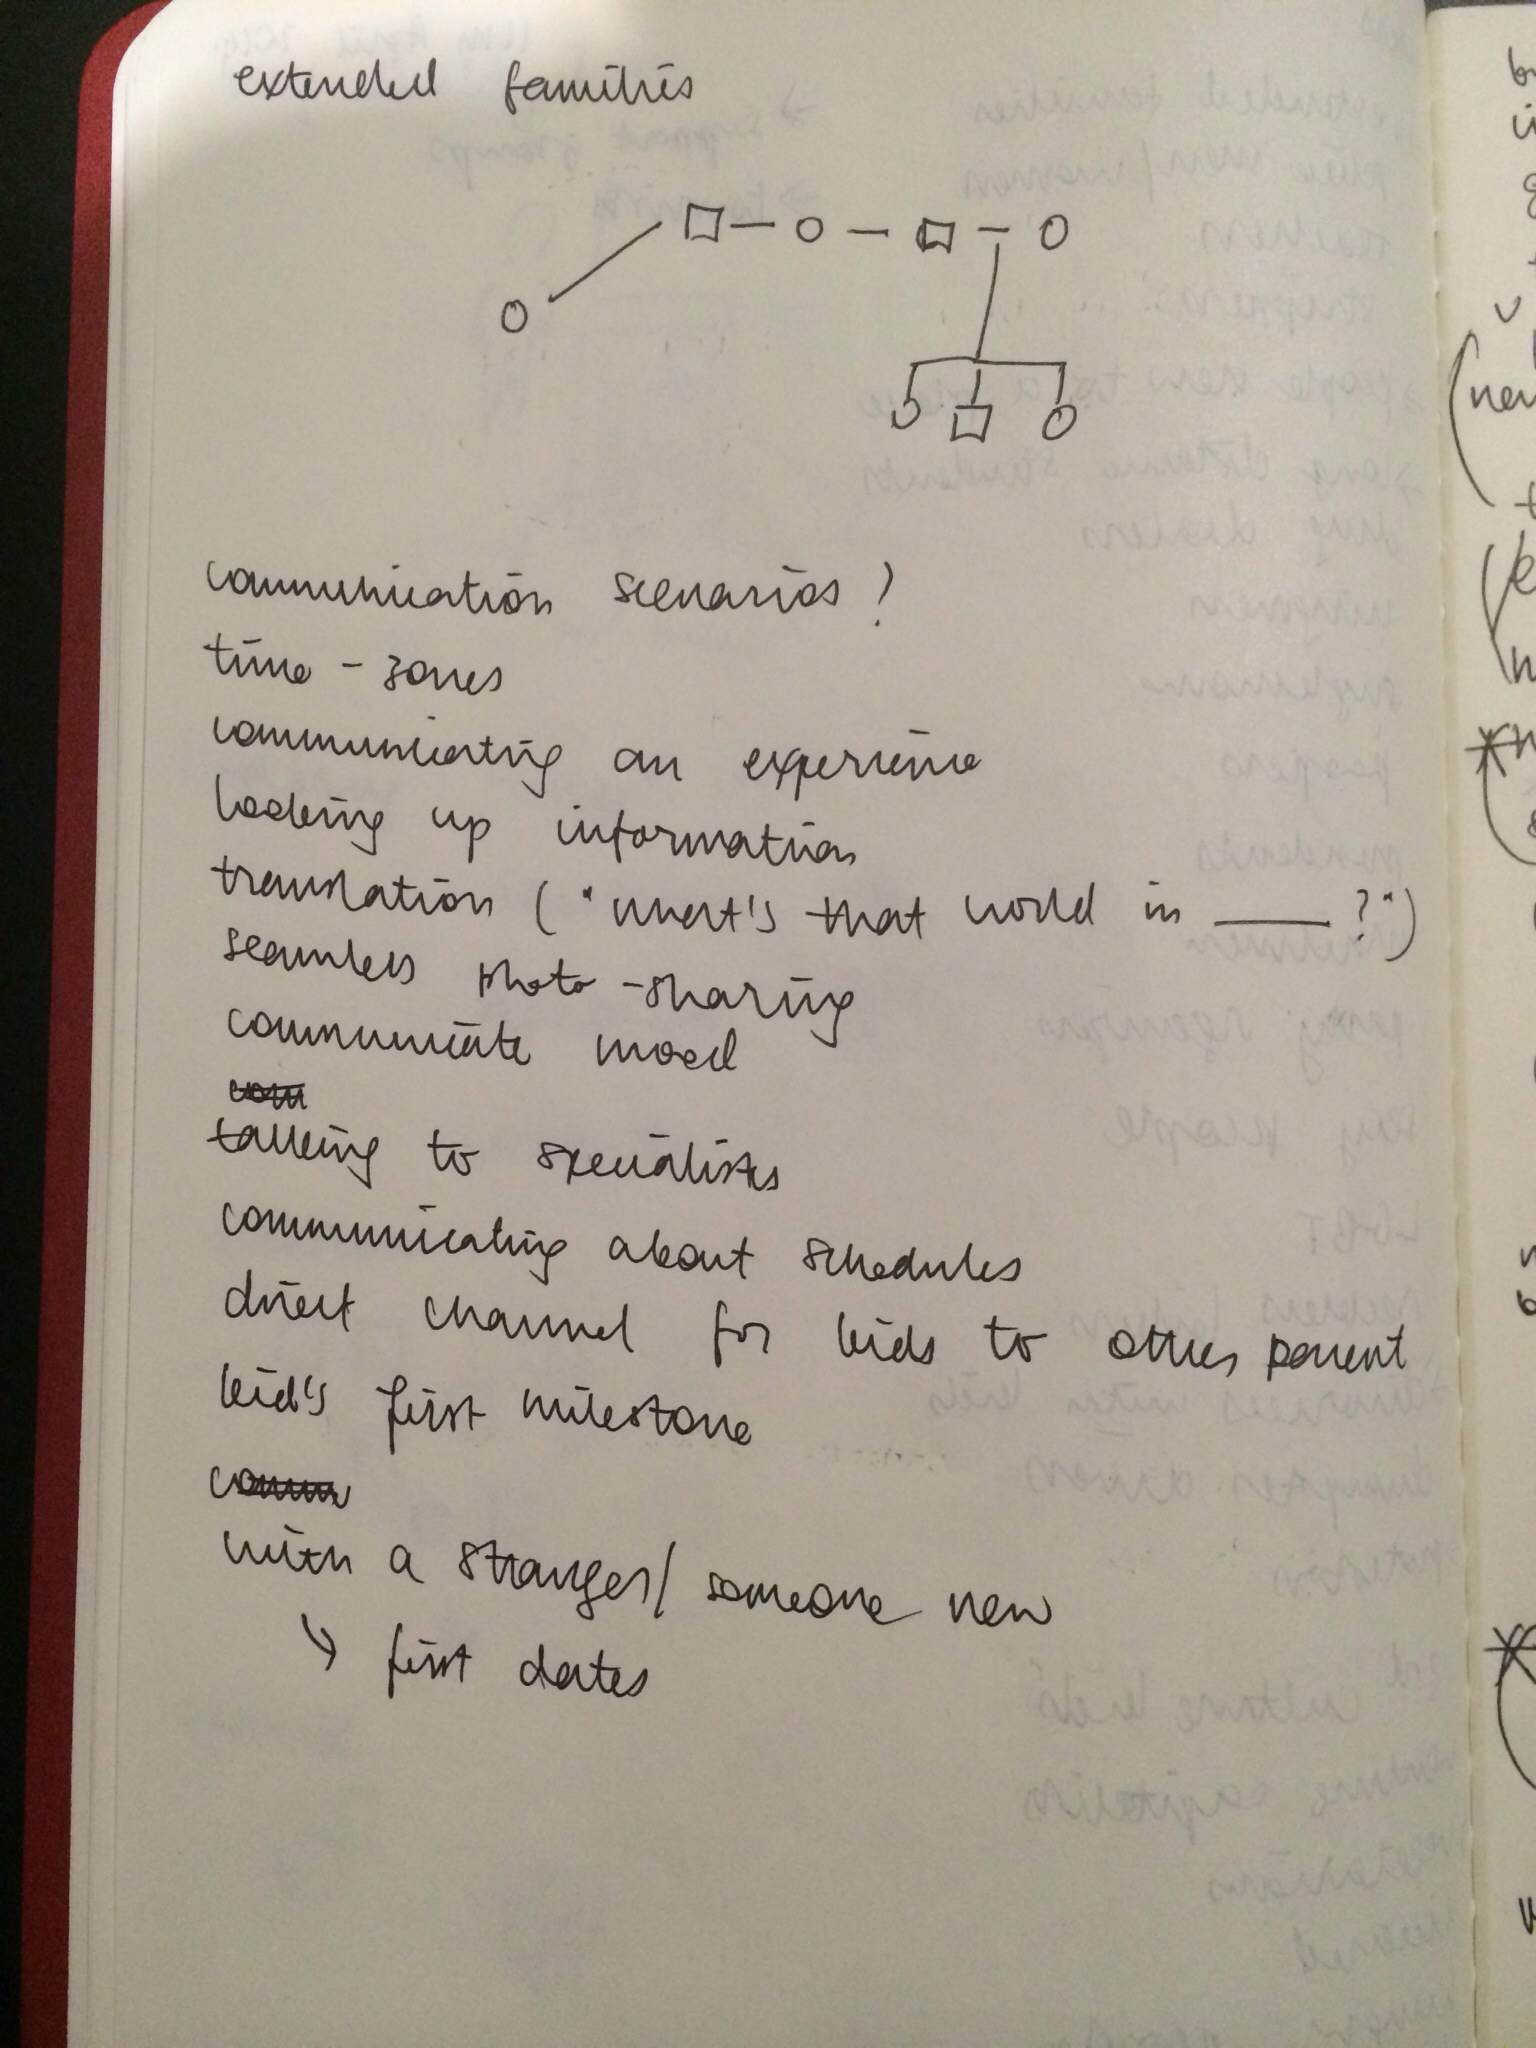 extended families
communication scenarios?
time - zones
communicating an experience
looking up information
translation ("what's that world in ____ ?")
seamless photo-sharing
communicate mood
com
talking to specialists
communicating about schedules
direct channel for kids to other parent
kid's first milestone
comm
with a stranger/ someone new
↳ first dates